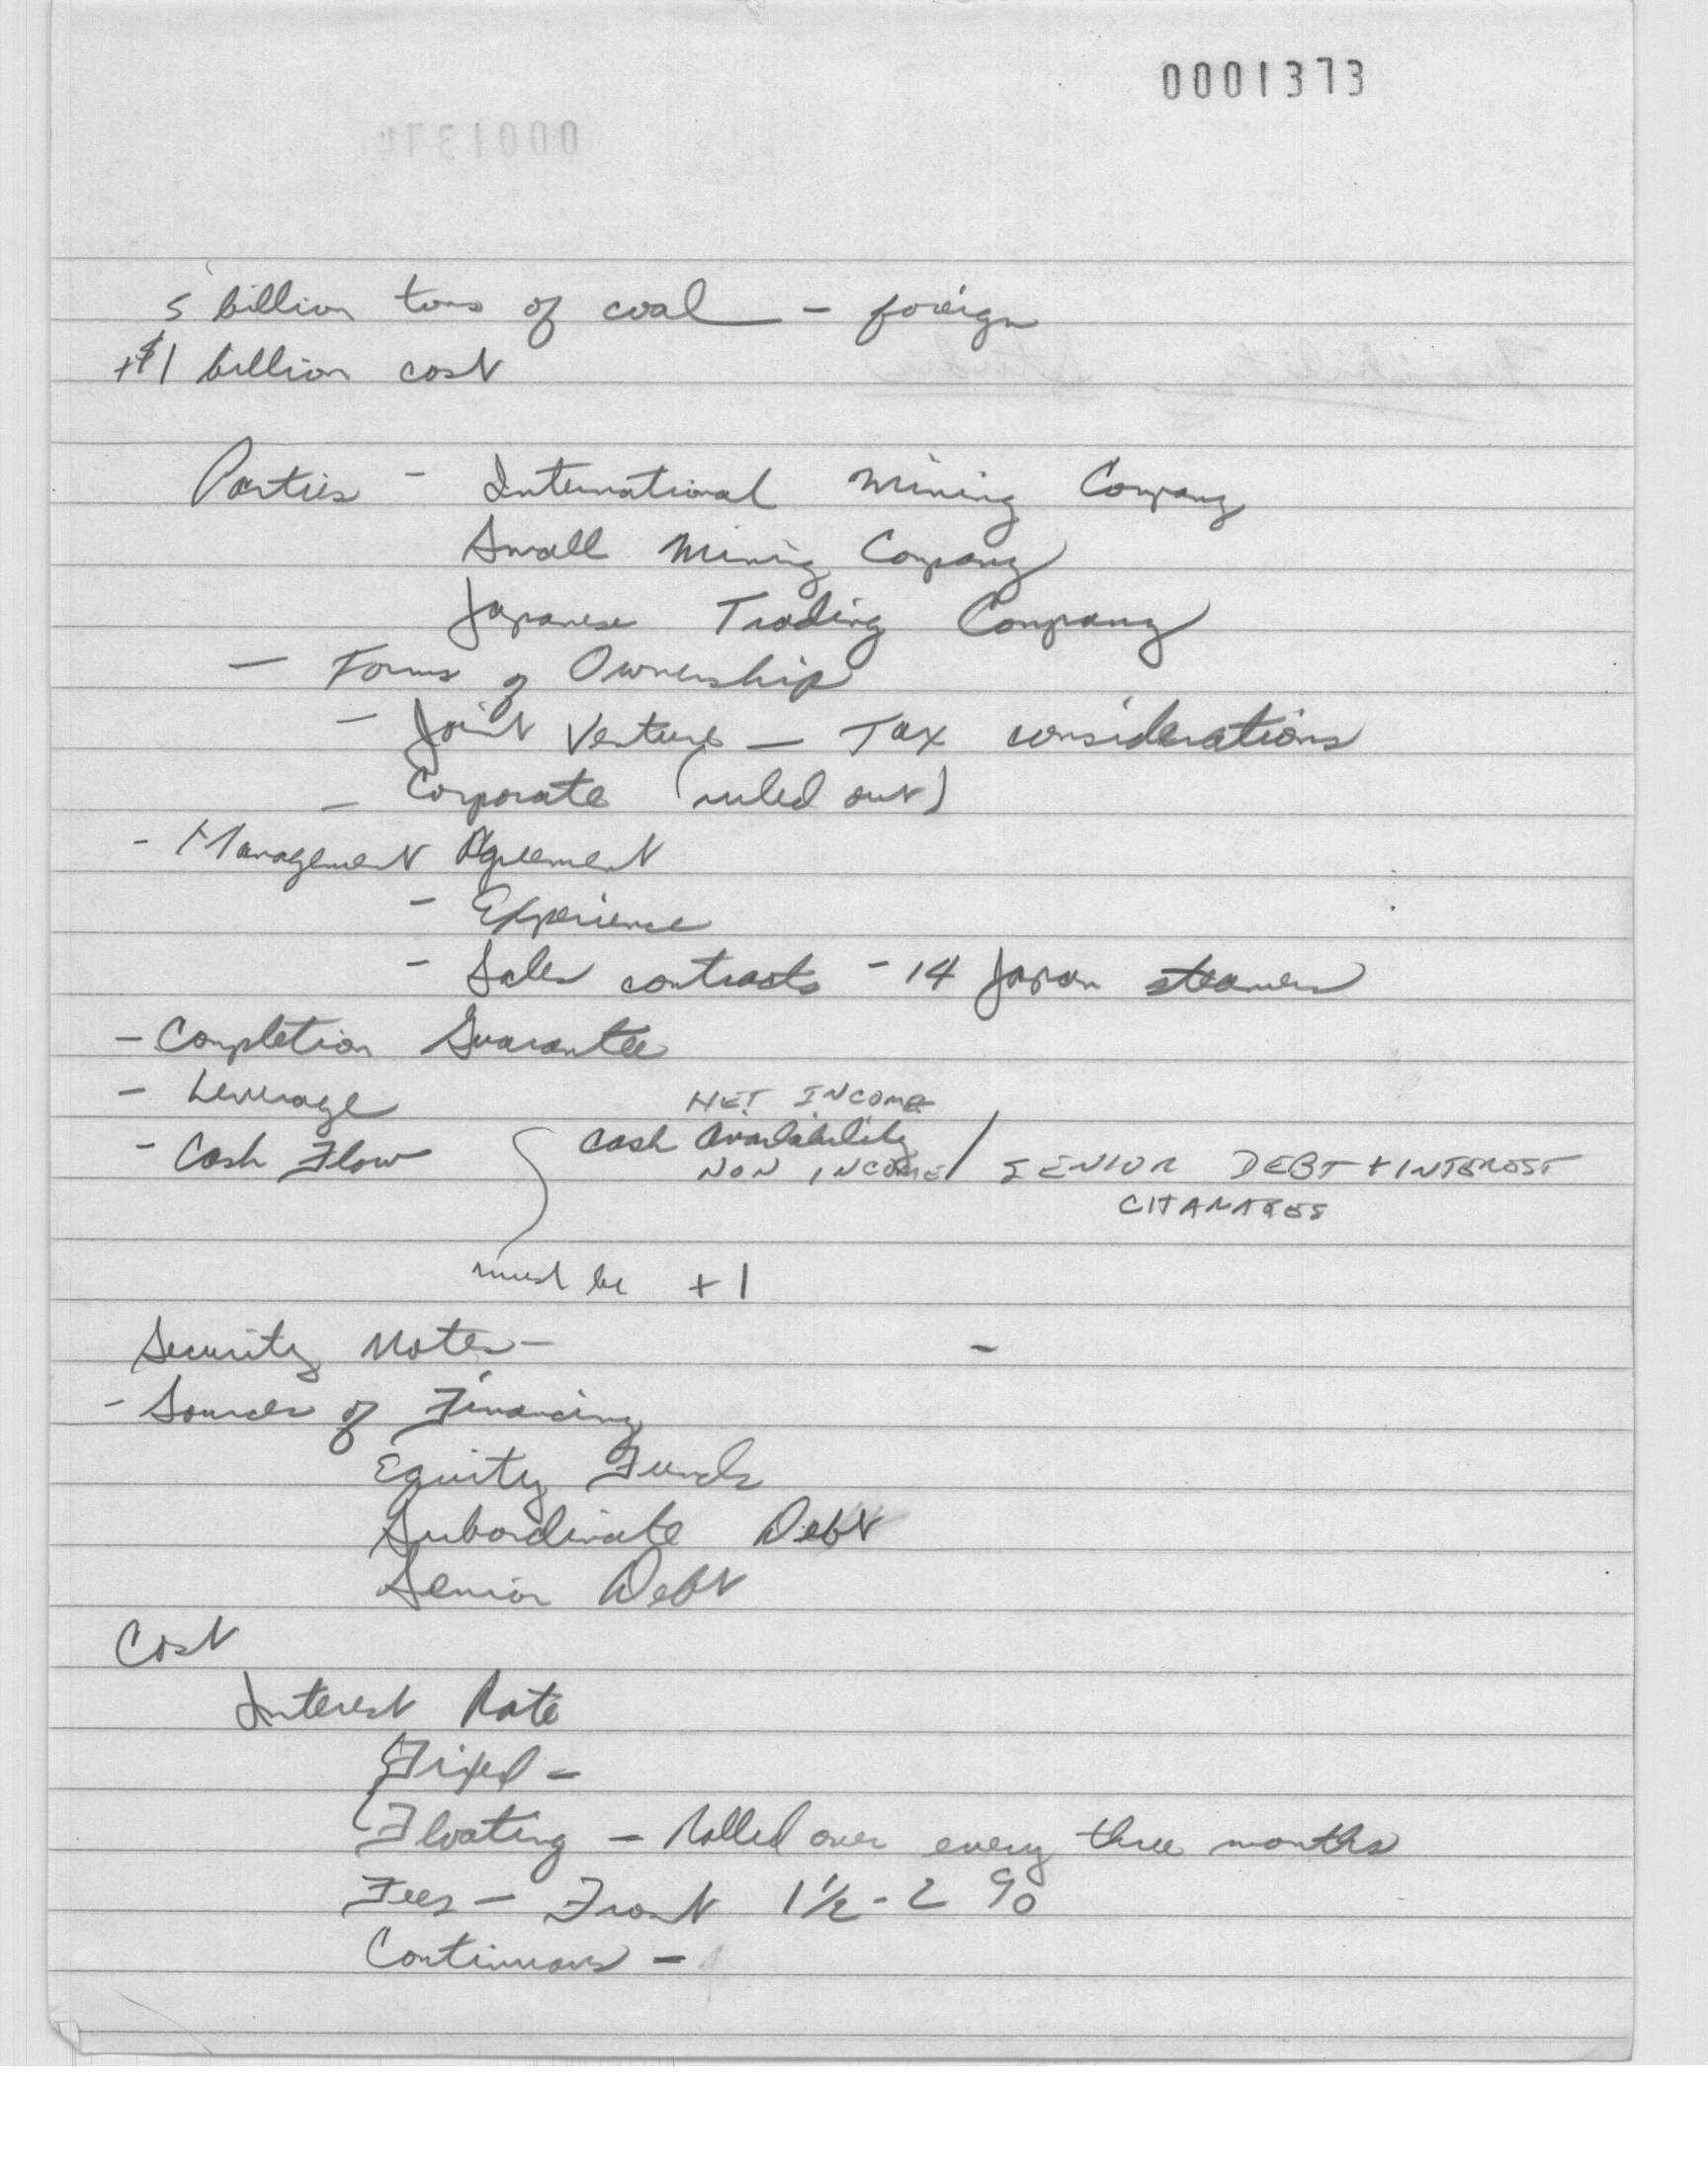 0001373
5 billion tons of coal - foreign
+$1 billion cost
Parties - International Mining Company
Small Mining Company
Japanese Trading Company
- Forms of Ownership
- Joint Venture - Tax considerations
- Corporate (ruled out)
- Management Agreement
- Experience
- Sales contracts - 14 Japan steamers
- Completion Guarantee
- Leverage
NET INCOME
- Cash Flow { cash availability /
NON INCOME SENIOR DEBT + INTEREST
CHARGES
must be +1
Security Notes -
- Sources of Financing
Equity Funds
Subordinate Debt
Senior Debt
Cost
Interest Rate
Fixed -
Floating - Rolled over every three months
Fees - Front 1½ - 2 %
Continuous -